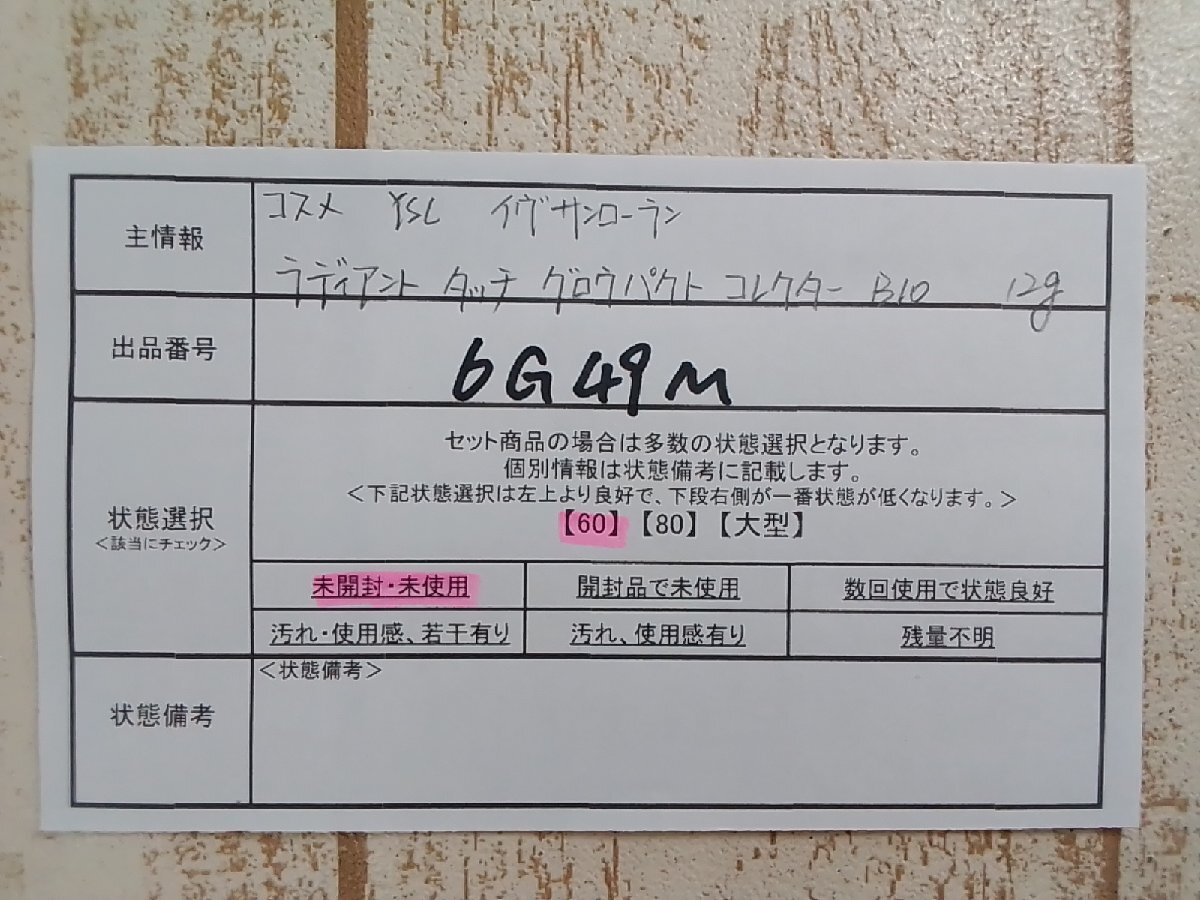 主情報
コスメ YSL イヴサンローラン
ラディアント タッチ グロウパクト コレクター B10 12g
出品番号
6G49M
状態選択
<該当にチェック>
セット商品の場合は多数の状態選択となります。
個別情報は状態備考に記載します。
<下記状態選択は左上より良好で、下段右側が一番状態が低くなります。>
【60】【80】【大型】
未開封・未使用 開封品で未使用 数回使用で状態良好
汚れ・使用感、若干有り 汚れ、使用感有り 残量不明
状態備考
<状態備考>